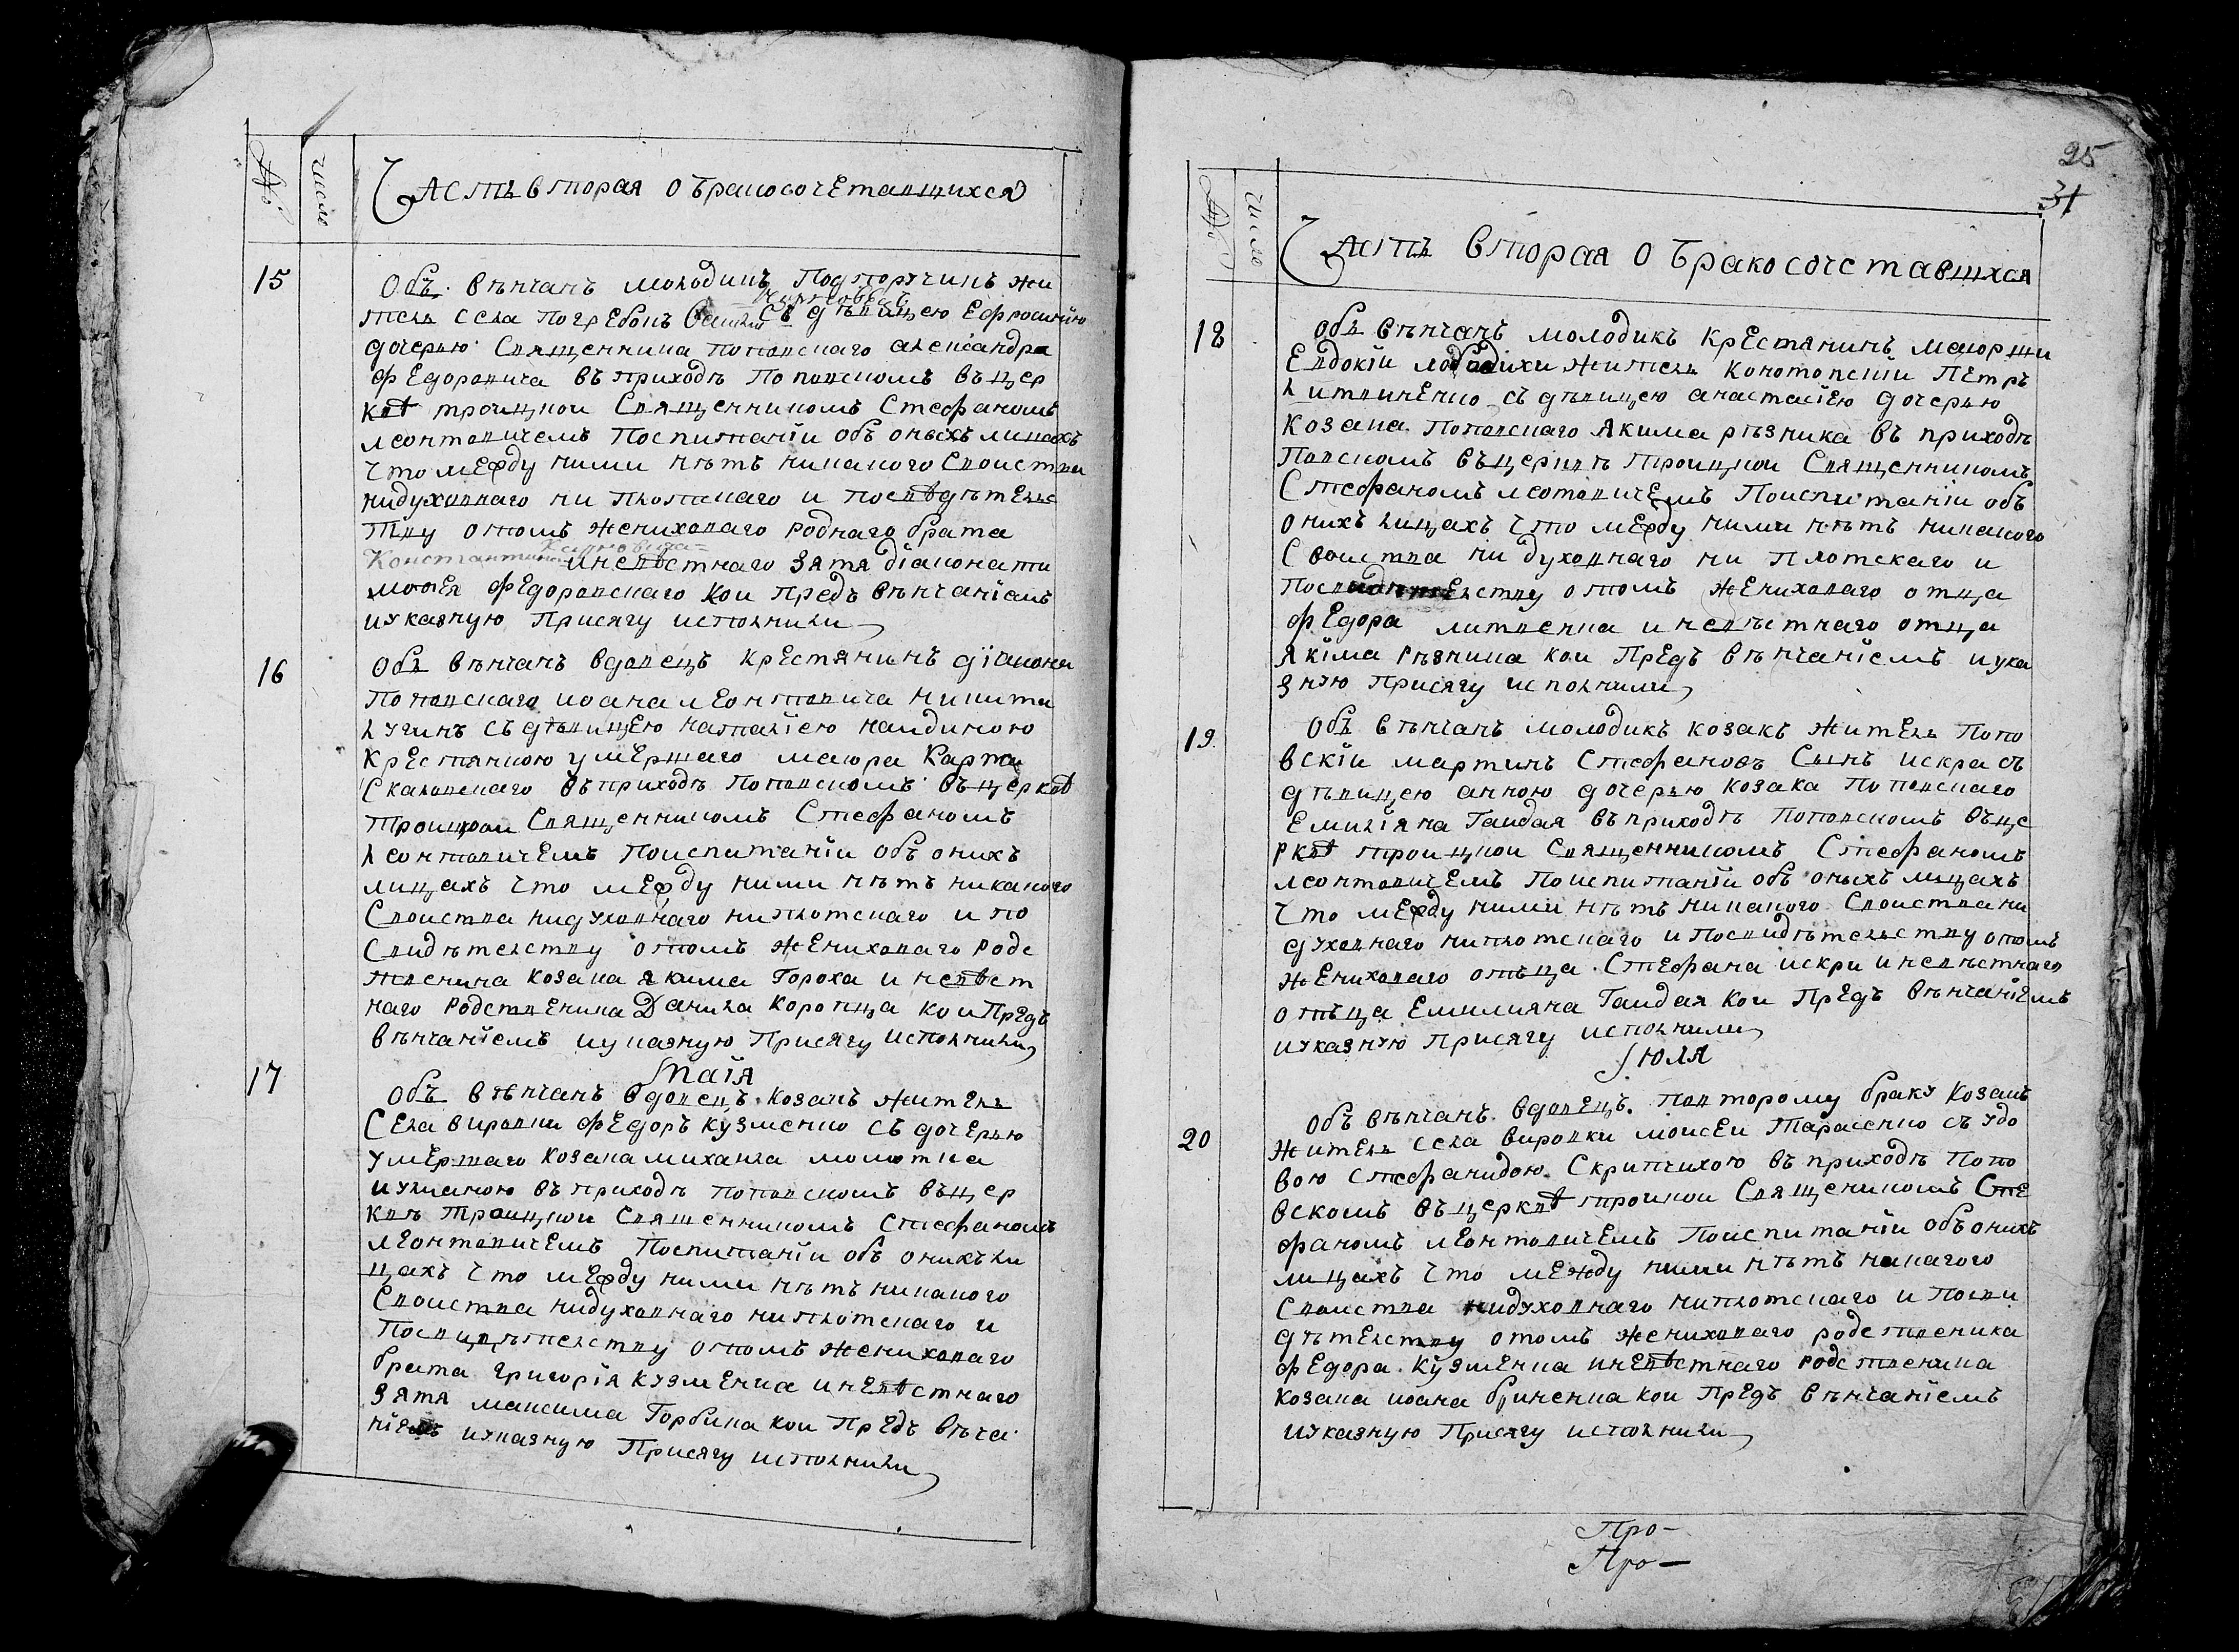 № Число Часть вторая о бракосочетавщихся
15
Объ венчанъ молодикъ Подпоручикъ жи
Карповичъ
тель села погребокъ съ девицею Ефросиниею
дочерью Священника поповскаго александра
Федоровича въ приходе поповскомъ въ цер
кве троицкои Священникомъ Стефаномъ
леонтовичемъ По испитании объ оныхъ лицахъ
что между ними нетъ никакого Своиства
ни духовнаго ни плотскаго и по сведетелс
тву о томъ жениховаго роднаго брата
Константина Карповича
и невестнаго зятя диакона ти
мофея Федоровскаго кои предъ венчаниемъ
и указную Присягу исполнили
16
Объ венчанъ вдовецъ крестянинъ диакона
поповскаго иоана леонтовича никита
лучинъ съ девицею наталиею наидиною
крестянкою умершаго маиора Карпа
Скаловскаго въ приходе поповскомъ въ церкве
троицкои Священникомъ Стефаномъ
леонтовичемъ по испитании объ онихъ
лицахъ что между ними нетъ никакого
Своиства ни духовнаго ни плотскаго и по
Свидетелству о томъ жениховаго родс
твеника козака якима Гороха и невест
наго родственика Данила коропца кои Предъ
венчаниемъ и указную Присягу исполнили
Маія
17
Объ венчанъ вдовецъ козакъ житель
Села вировки Федоръ кузменко съ дочерью
умершаго козака михаила
улианою въ приходе поповскомъ въ цер
кве троицкои Священникомъ Стефаномъ
леонтовичемъ По испитании объ онихъ ли
цахъ что между ними нетъ никакого
Своиства ни духовнаго ни плотскаго и
По свидетелству о томъ жениховаго
брата григория кузменка и невестнаго
зятя максима Горбика кои Предъ венча
ниемъ и указную Присягу исполнили
25
31
№ Число Часть вторая о бракосочетавшихся
18
Объ венчанъ молодикъ крестянинъ маиорши
Евдокіи лободихи житель конотопскіи Петръ
литвиненко съ девицею анастасіею дочерью
козака поповскаго якима резника въ приходе
поповскомъ въ церкве троицкои Священникомъ
Стефаномъ леотовичемъ По испитаніи объ
онихъ лицахъ что между ними нетъ никакого
Своиства ни духовнаго ни плотскаго и
по сведетелству о томъ жениховаго отца
Федора литвенка и невестнаго отца
якіма резника кои Предъ венчаніемъ и ука
зную присягу исполнили
19
Объ венчанъ молодикъ козакъ житель Попо
вскіи мартинъ Стефановъ Сынъ искра съ
девицею анною дочерью козака поповскаго
Емиліяна Гаидая въ приходе поповскомъ въ це
ркве троицкои Священникомъ Стефаномъ
леонтовичемъ По испитаніи объ оныхъ лицахъ
что между ними нетъ никакого Своиства ни
духовнаго ни плотскаго и по свидетельству о томъ
жениховаго отьца Стефана искри и невестнаго
отьца Емилияна Гаидая кои Предъ венчаніемъ
и указную присягу исполнили
Июля
20
Объ венчанъ вдовецъ по второму браку козакъ
житель села вировки моисеи тарасенко съ удо
вою Стефанидою Скрипчихою въ приходе попо
вскомъ въ церкве троицкои Священикомъ Сте
фаномъ леонтовичемъ По испитаніи объ онихъ
лицахъ что между ними нетъ никагого
своиства ни духовнаго ни плотскаго и по сви
детелству о томъ жениховаго родственика
Федора кузменка и невестнаго родственика
козака иоана Гриненка кои Предъ венчаніемъ
и указную Присягу исполнили
Про-
Про-